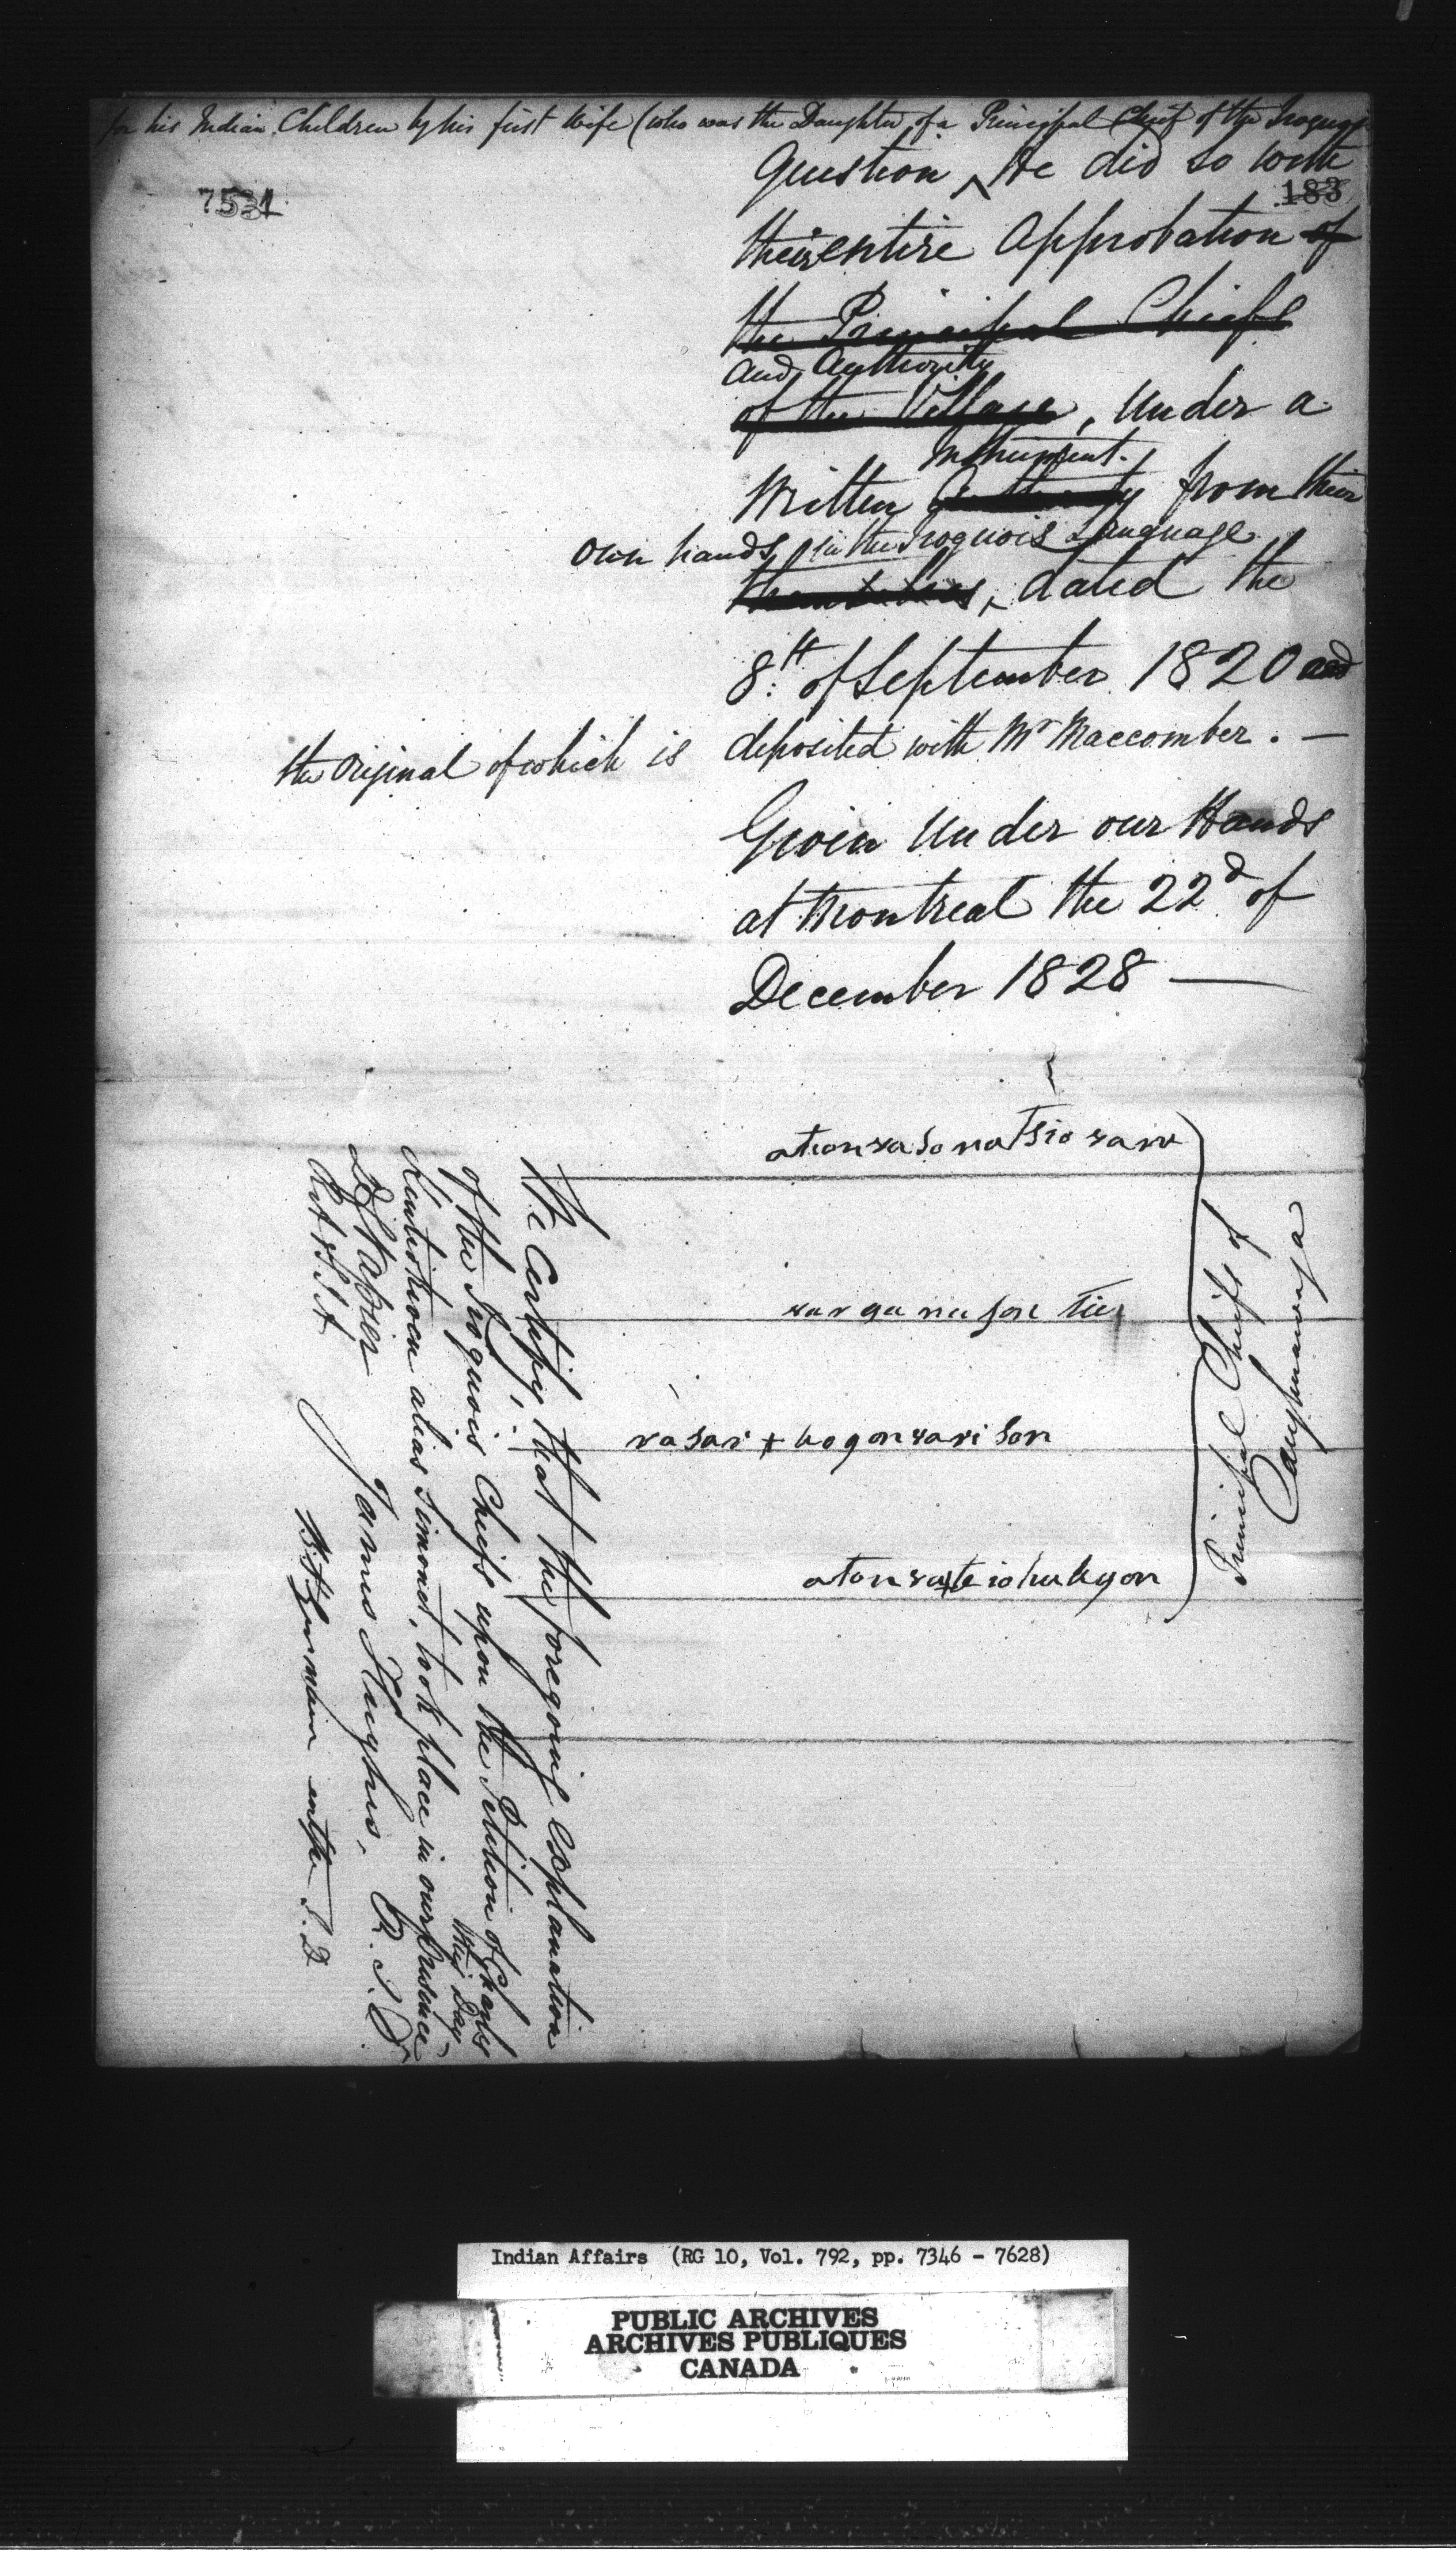 for his Indian Children by his first Wife (who was the Daughter of a Principal Chief of the Iroquois
7531
183
Question, He did so with
their entire Approbation of
the Principal Chiefs
and Authority
of the Village, Under a
Instrument.
Written Authority from their
own hands, in the Iroquois Language
themselves, dated the
8th of September 1820 and
the Original of which is deposited with Mr Maccomber. —
Given Under our Hands
at Montreal the 22d of
December 1828 —
Principal Chiefs of
Caughnawaga
We Certify, that the foregoing Explanation
of the Iroquois Chiefs upon the Petition of Charles
alias Simonet, took place in our presence
this Day
D. C. Napier
James Hughes,
Indian Affairs (RG 10, Vol. 792, pp. 7346 - 7628)
PUBLIC ARCHIVES
ARCHIVES PUBLIQUES
CANADA